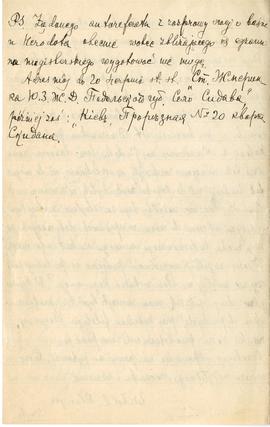 PS Żadanego autoreferatu z rozprawy mojej o baśni
u Herodota obecnie wobec zbliżającego się egzaminu
magisterskiego zredagować nie mogę.
Adres mój do 20 sierpnia st. st. "Ст. Жмерин
ка Ю.З.Ж.Д. Подольской губ. Село Сидава",
później zaś: "Киев, Прорезная № 20 кварт.